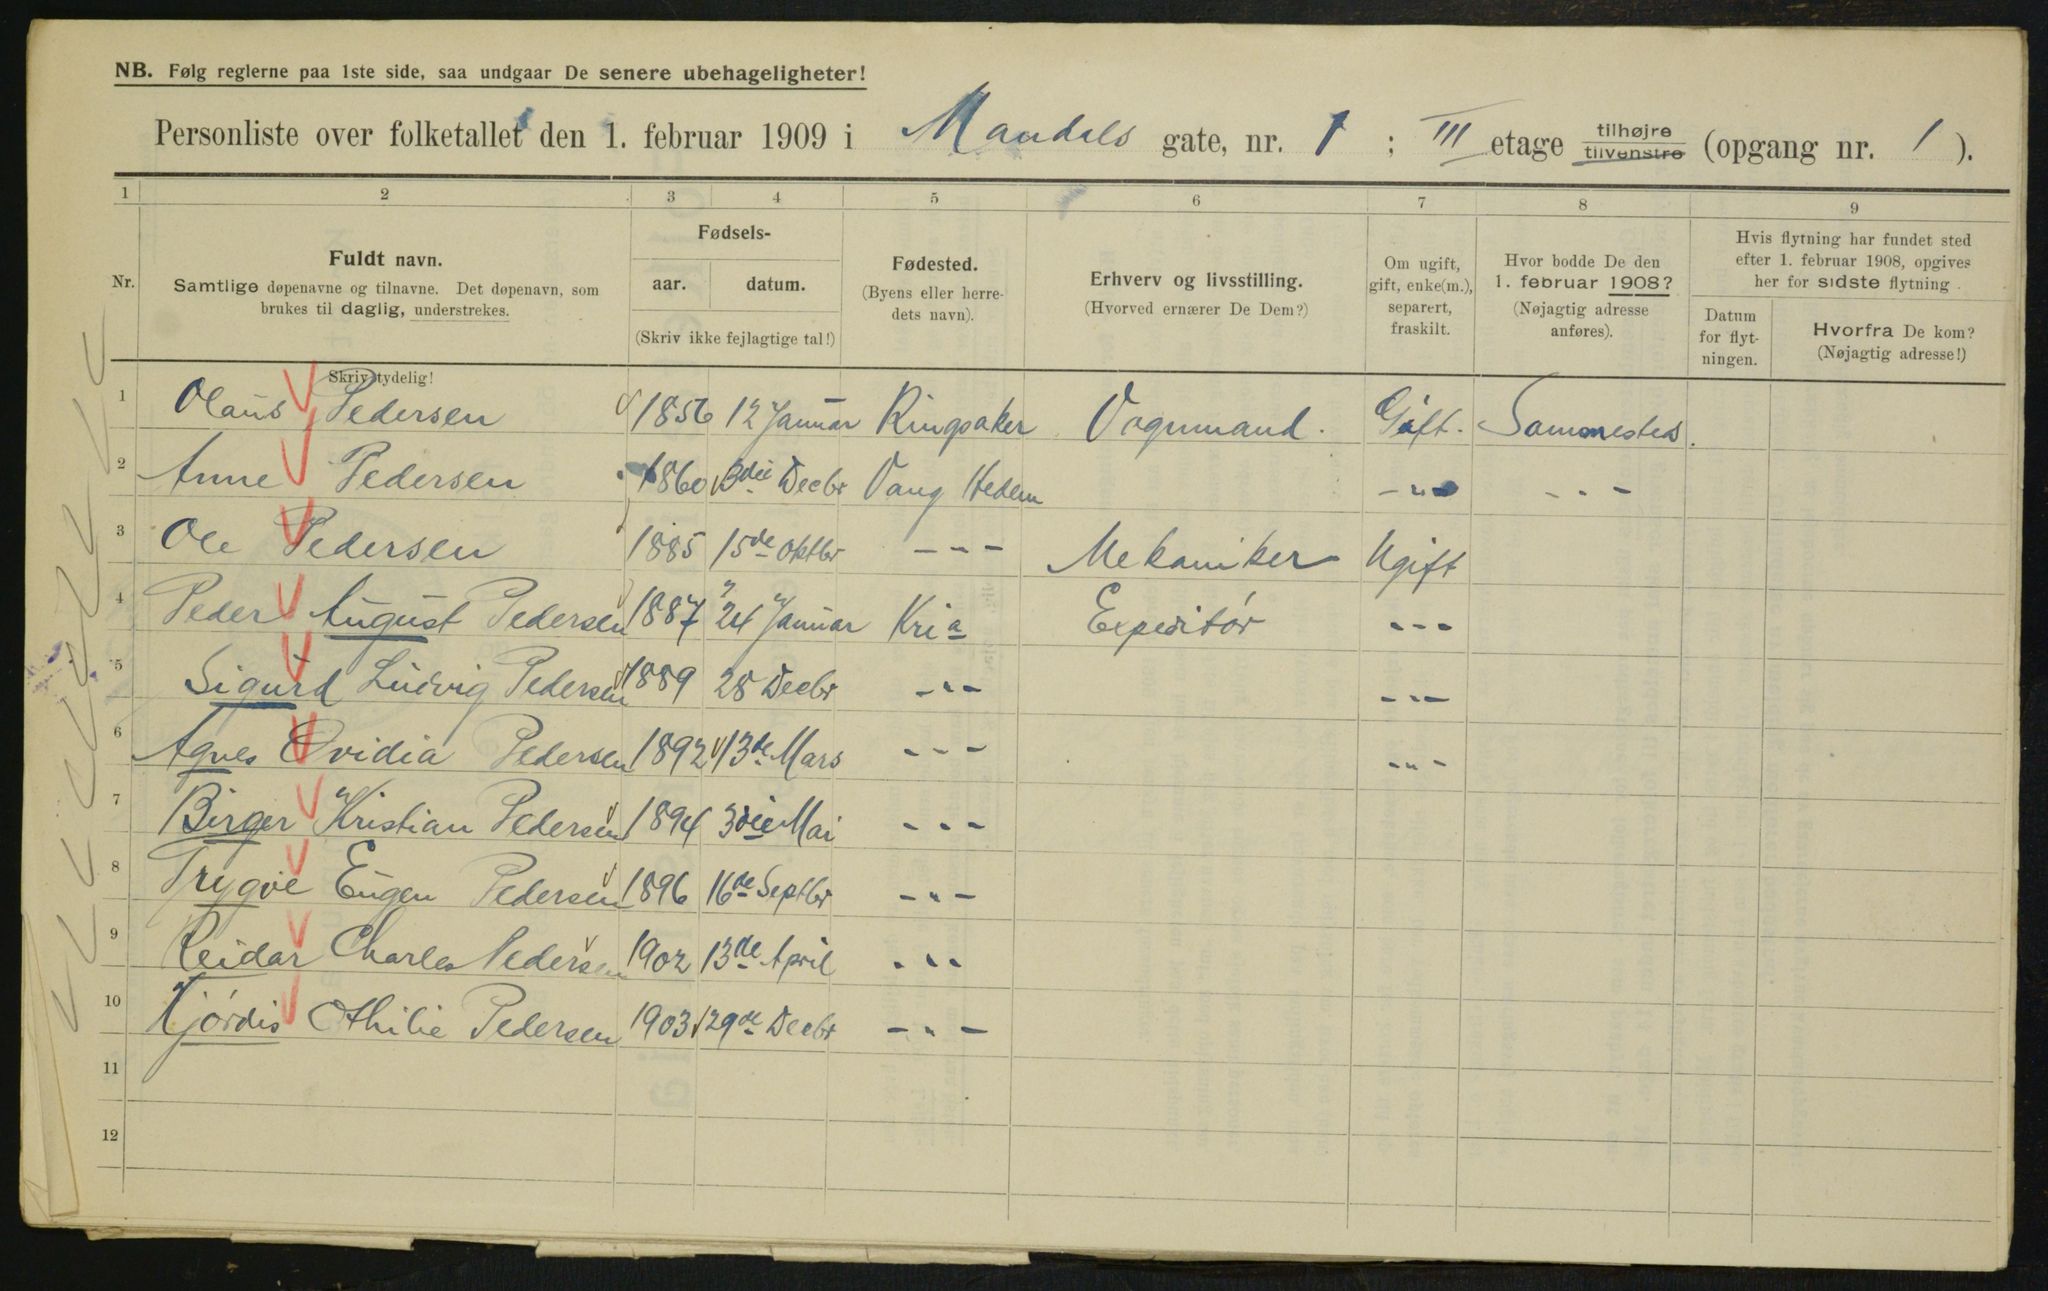 NB. Følg reglerne paa 1ste side, saa undgaar De senere ubehageligheter!
Personliste over folketallet den 1. februar 1909 i Mandals gate, nr. 1 ; III etage tilhøjre tilvenstre (opgang nr. 1 ).
1 2 3 4 5 6 7 8 9
Nr.
Fuldt navn.
Samtlige døpenavne og tilnavne. Det døpenavn, som
brukes til daglig, understrekes.
Skriv tydelig!
Fødsels-
aar. datum.
(Skriv ikke fejlagtige tal!)
Fødested.
(Byens eller herre-
dets navn).
Erhverv og livsstilling.
(Hvorved ernærer De Dem?)
Om ugift,
gift, enke(m.),
separert,
fraskilt.
Hvor bodde De den
1. februar 1908?
(Nøjagtig adresse
anføres).
Hvis flytning har fundet sted
efter 1. februar 1908, opgives
her for sidste flytning
Datum
for flyt-
ningen.
Hvorfra De kom?
(Nøjagtig adresse!)
1 Olaus Pedersen 1856 12 Januar Ringsaker Vognmand. Gift. Sammesteds.
2 Anne Pedersen 1860 3die Decbr Vang Hedem -"- - - -
3 Ole Pedersen 1885 15de Oktbr - - - Mekaniker Ugift
4 Peder August Pedersen 1887 24 Januar Kria Expeditór - - -
5 Sigurd Ludvig Pedersen 1889 28 Decbr -"- - - -
6 Agnes Ovidia Pedersen 1892 13de Mars - - - -"-
7 Birger Kristian Pedersen 1894 3die Mai - - -
8 Trygve Eugen Pedersen 1896 16de Septbr -"-
9 Reidar Charles Pedersen 1902 13de April -"-
10 Hjórdis Othilie Pedersen 1903 29de Decbr -"-
11
12